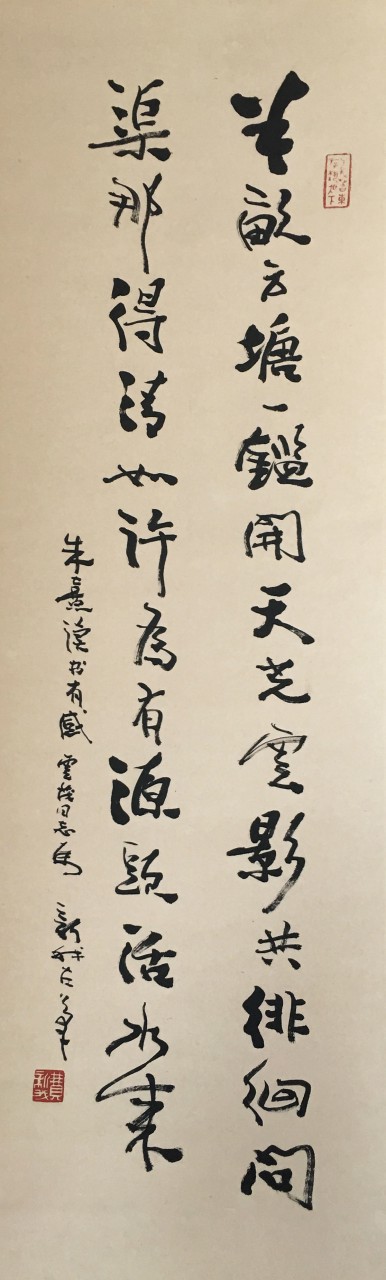 半畝方塘一鑑開天光雲影共徘徊問
渠那得清如許為有源頭活水來
朱熹讀书有感
同志属
新